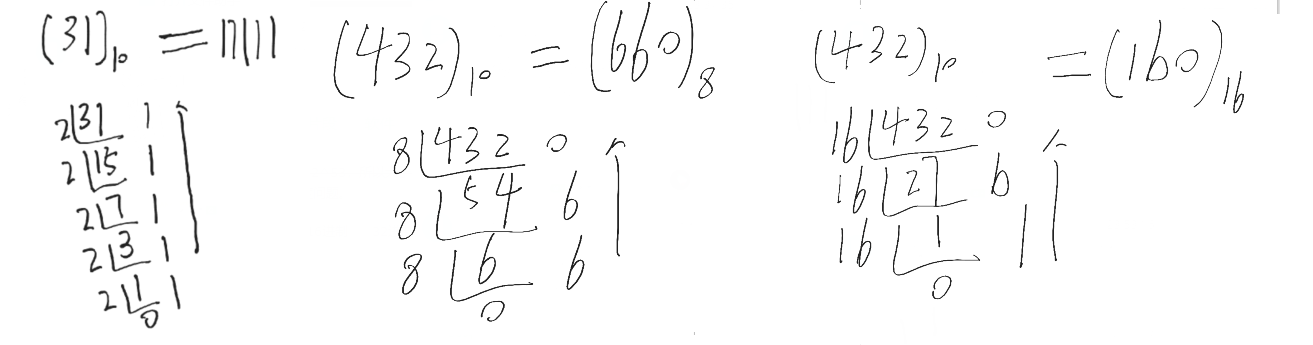 (31)₁₀ = 11111
2 31 1
2 15 1
2 7 1
2 3 1
2 1 1
0
(432)₁₀ = (660)₈
8 432 0
8 54 6
8 6 6
0
(432)₁₀ = (1b0)₁₆
16 432 0
16 27 b
16 1 1
0